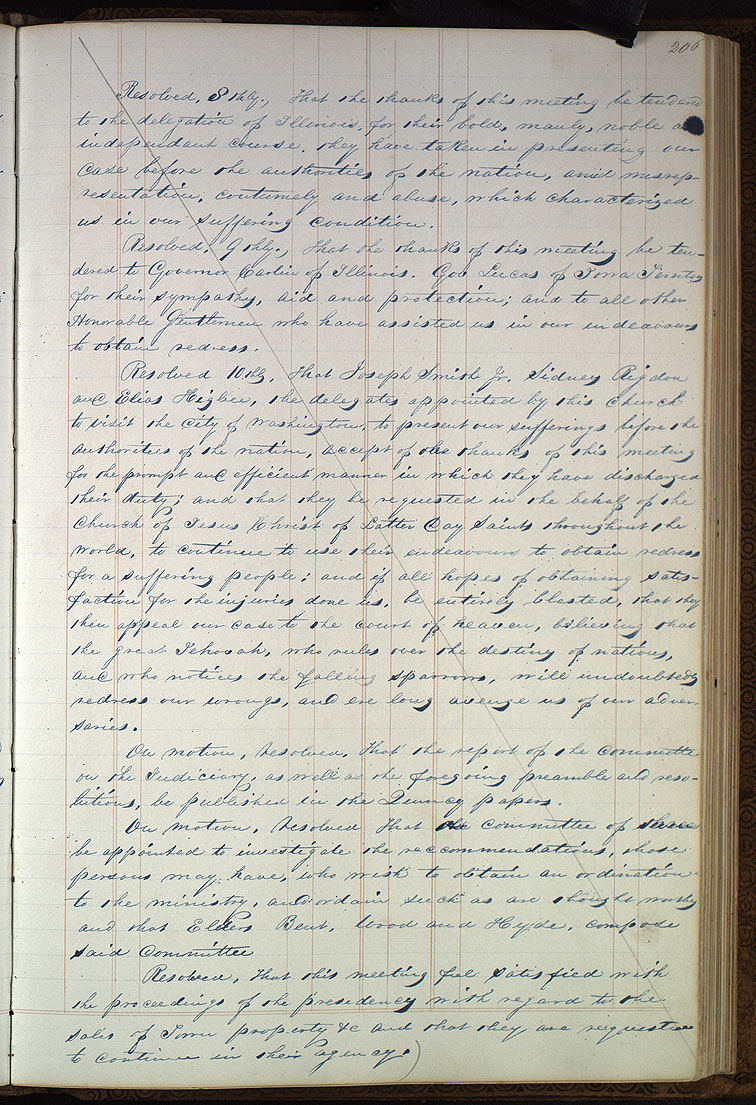 206
Resolved, 8thly., That the thanks of this meeting be tendered
to the delegation of Illinois, for their bold, manly, noble
independant course, they have taken in presenting our
case before the authorities of the nation, amid misrep-
resentation, contumely and abuse, which characterized
us in our suffering condition.
Resolved, 9thly., That the thanks of this meeting be ten-
dered to Governor Carlin of Illinois. Gov Lucas of Iowa Territory
for their sympathy, aid and protection; and to all other
Honorable Gentlemen who have assisted us in our endeavours
to obtain redress.
Resolved 10thly, That Joseph Smith Jr. Sidney Rigdon
and Elias Higbee, the delegates appointed by this church
to visit the City of Washington, to present our sufferings before the
authorities of the nation, accept of the thanks of this meeting
for the prompt and efficient manner in which they have discharged
their duty; and that they be requested in the behalf of the
Church of Jesus Christ of Latter Day Saints throughout the
world, to continue to use their endeavours to obtain redress
for a suffering people; and if all hopes of obtaining satis-
faction for the injuries done us, be entirely blasted, that they
then appeal our case to the court of heaven, believing that
the great Jehovah, who rules over the destiny of nations,
and who notices the falling sparrows, will undoubtedly
redress our wrongs, and ere long avenge us of our adver
saries.
On motion, resolved, That the report of the Committe
on the Judiciary, as well as the foregoing preamble and reso-
lutions, be published in the Quincy papers.
On motion, resolved That committee of three
be appointed to investigate the reccommendations, those
persons may have, who wish to obtain an ordination
to the ministry, and ordain such as are thought worthy
and that Elders Bent, Wood and Hyde, compose
said Committee
Resolved, That this meeting feel satisfied with
the proceedings of the presidency with regard to the
sales of Town property &c and that they are requested
to continue in their agency.)